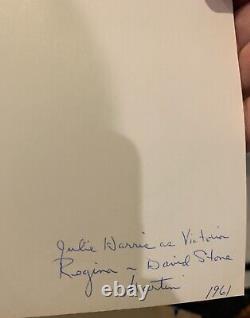 Julie Harris as Victoria
Regina ~ David Stone
Martin
1961